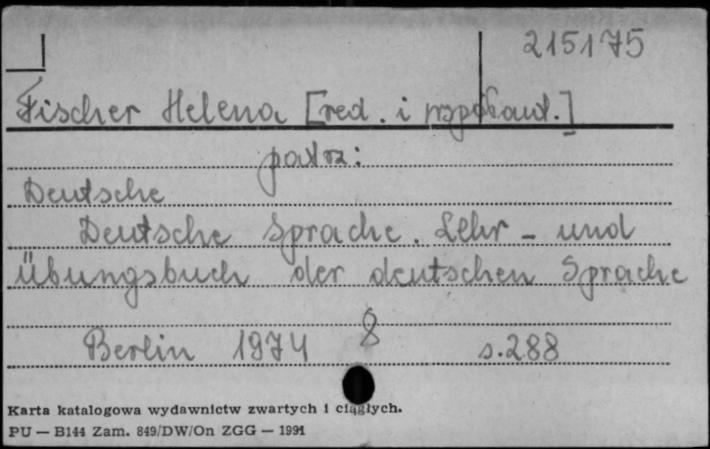 215175
Fischer Helena [red. i współaut.]
patrz:
Deutsche
Deutsche Sprache. Lehr - und
Übungsbuch der deutschen Sprache
Berlin 1974 8 s. 288
Karta katalogowa wydawnictw zwartych i ciągłych.
PU — B144 Zam. 849/DW/On ZGG — 1991